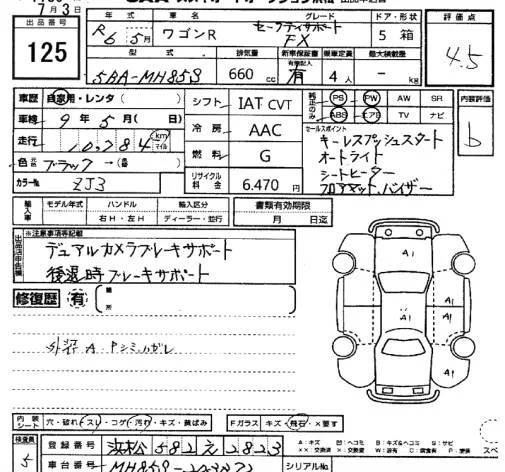 7月3日
出品番号
125
年式 グレード ドア・形状 評価点
R6年5月 ワゴンR セーフティサポート FX 5 箱
4.5
型式 排気量 新車保証書 有償記入 乗車定員 最大積載量
5BA-MH85S 660cc 有 4人 - kg
車歴 自家用・レンタ( )
シフト IAT CVT
純正のみ PS PW AW SR
ABS エアB TV ナビ
内装評価
b
車検 9年5月( 日)
冷房 AAC
セールスポイント
キーレスプッシュスタート
オートライト
シートヒーター
フロアマット、バイザー
走行 10,784 km マイル
燃料 G
色 元色 ブラック→(番 )
カラーNo. ZJ3
リサイクル料金 6,470円
輸入車 モデル年式 ハンドル 輸入区分 書類有効期限
年 右H・左H ディーラー・並行 月 日迄
出品店申告欄
※注意事項等記載
デュアルカメラブレーキサポート
後退時ブレーキサポート
修復歴 有 ( 箇所
外装 A・Pシミ、ハガレ
A1
A1
A1
A1
A1
内装シート 穴・破れ・スレ・コゲ・汚れ・キズ・黄ばみ Fガラス キズ・飛石・×要す
検査員
5
登録番号 浜松 582 え 2823
A：キズ U：ヘコミ B：キズ&ヘコミ S：サビ
××：交換済 ×：要交換 W：波有 C：腐食有 P：塗装
車台番号 MH85S-
シリアルNo.